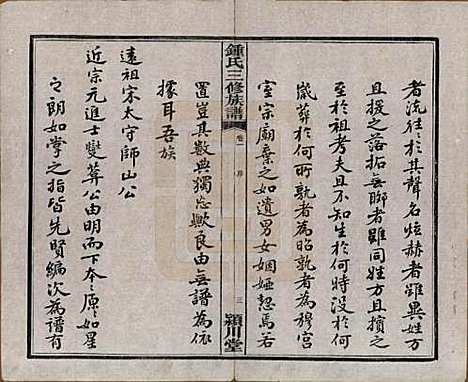 者流往往於其聲名烜赫者雖異姓方
且援之落拓無聊者雖同姓方且擯之
至於祖考夫且不知生於何時沒於何
歲葬於何所孰者為昭孰者為穆宮
室宗廟棄之如遺男女姻婭忽焉若
鍾氏三修族譜
卷一
序
三
潁川堂
置豈其數典獨忘歟良由無譜為依
據耳吾族
遠祖宋太守師山公
近宗元進士燮葬公由明而下本本原原如星
之朗如掌之指皆先賢編次為譜有